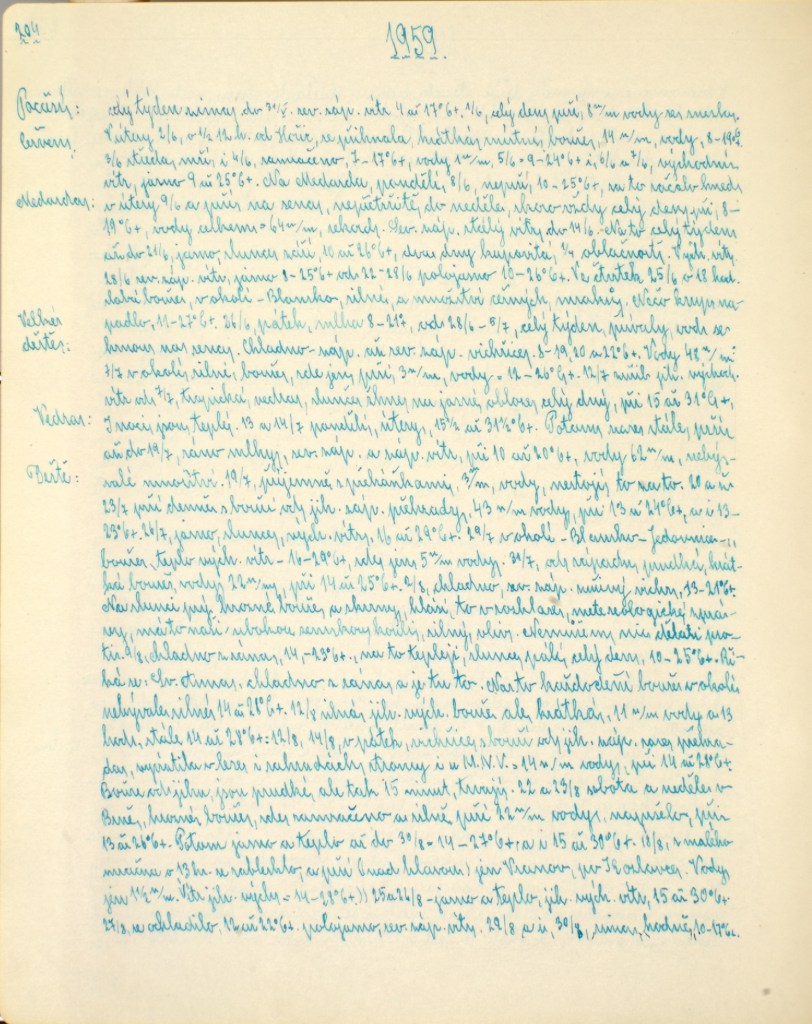 204
1959.
Počasí: celý týden zima, do 31/5. sev. záp. vítr 4 až 17°C+. 1/6, celý den prší, 8 m/m vody
Červen, V úterý 2/6, o 1/2 11.h. od Hořic, se přihnala, krátká místní bouře, 14 m/m, vody, 8-19°C+.
3/6 středa, mží, i 4/6, zamračeno, 7-17°C+, vody 1 m/m, 5/6 = 9-24°C+ i 6/6 a 7/6, východní
Medardova: vítr, jasno 9 až 25°C+. Na Medarda, pondělí, 8/6, neprší, 10-25°C+, za to začalo hned
v úterý 9/6 a prší, na senoseč, nepřetržitě, do neděle, skoro vždy celý den, prší, 8-
19°C+, vody celkem = 64 m/m, rekord. Sev. záp. stálý vítr do 14/6. Na to celý týden
až do 21/6, jasno, slunce září, 10 až 26°C+, dva dny kupovitá, 3/4 oblačnosti. Vých. vítr.
23/6 sev. záp. vítr, jasno 8-25°C+ od 22-28/6 polojasno 10-26°C+. Ve čtvrtek 25/6 v 18 hod.
slabá bouře, v okolí - Blansko, silné, a množství černých, mraků. Něco krup na-
Velké padlo, 11-27°C+. 26/6, pátek, mlha 8-21°, od 28/6 - 5/7, celý týden, přívaly, vod se
deště: hrnou na senoseč. Chladno - záp. až sev. záp. vichřice. 8-19, 20 a 22°C+. Vody 48 m/m
7/7 v okolí silné, bouře, zde jen, prší, 3 m/m, vody = 12-26°C+. 12/7 mírně jih. východ.
vítr od 7/7, tropická, vedra, slunce žhne, na jasné obloze, celý dny, při 15 až 31°C+,
Vedra: I noci jsou, teplé. 13 a 14/7 pondělí, úterý, 15 1/2 až 31 1/2°C+. Potom zase stále, prší
až do 19/7, ráno mlhy, sev. záp. a záp. vítr, při 10 až 20°C+, vody 62 m/m, neby-
Deště: valé množství. 19/7, příjemně s přeháňkami, 3 m/m, vody, nestojí to za to. 20 a
23/7 prší denně s bouří od jih. záp. přehrady, 43 m/m vody, při 13 až 24°C+, a i 13-
23°C+. 26/7, jasno, slunce, vých. vítr, 16 až 29°C+. 29/7 v okolí - Blansko - Jedovnice -,
bouře, teplo vých. vítr - 16-29°C+, zde jen, 5 m/m vody. 31/7, od západu, prudká, krát-
ká bouře, vody 22 m/m, při 14 až 25°C+. 2/8, chladno, sev. záp. mírný vichr, 13-21°C+.
Na slunci prý hrozné bouře, a skvrny, hlásí, to v rozhlase, meteorologické zprá-
vy, má to naší ubohou zemskou kouli, silný, vliv. Nemůžem, nic dělati pro-
ti. 9/8, chladno z rána, 14,-23°C+, na to tepleji, slunce pálí, celý den, 10-25°C+. Ří-
ká se: Sv. Anna, chladna z rána a je tu to. Nastv každodení bouře v okolí
nebývale silné, 14 až 28°C+. 12/8 silná, jih. vých. bouře ale, krátká, 11 m/m vody o 13
hod., stále 14 až 28°C+. 12/8, 14/8, v pátek, vichřice, s bouří od jih. záp. zase přehra-
da, vyvrátila v lese i zahradách, stromy i u M.N.V. = 14 m/m vody, při 14 až 28°C+.
Bouře od jihu, jsou prudké, ale tak 15 minut, trvají. 22 a 23/8 sobota a neděle v
Brně, hrozné, bouře, zde zamračeno a silně prší 22 m/m vody, napršelo, při
13 až 26°C+. Potom jasno a teplo až do 30/8 = 14-27°C+, a i 15 až 30°C+. 18/8, z malého
mráčna o 13 h. se zablesklo, a prší (nad hlavou) jen Vranov, po Šebrovec. Vody
jen 1 1/2 m/m. Vítr jih. vých. = 14-28°C+.)) 25 a 26/8 - jasno a teplo, jih. vých. vítr, 15 až 30°C+
27/8, se ochladilo, 12 až 22°C+. polojasno, sev. záp. vítr. 29/8 a i, 30/8, zima, hodně, 10-17°C+.